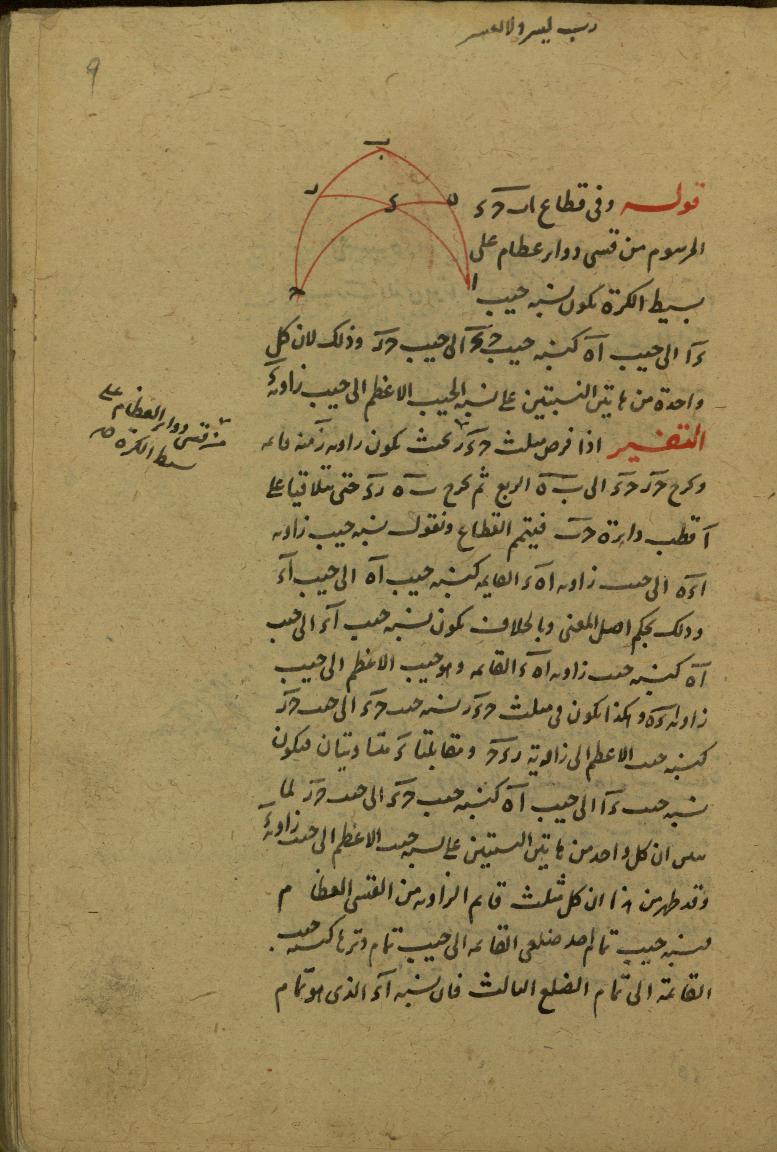 رب يسر ولا تعسر
9
قوله وفى قطاع ا ب ح ء
المرسوم من قسى دواير عظام على
بسيط الكرة تكون نسبة جيب
ء ا الى جيب ا ه كنسبة جيب ح ء الى جيب ح ر وذلك لان كل
واحدة من هاتين النسبتين على نسبة الجيب الاعظم الى جيب زاوية ء
التفسير اذا فرض مثلث ح ء ر بحيث تكون زاوية ر منه قايمة
و نخرج ح ر ح ء الى ب ه الربع ثم نخرج ب ه ر ء حتى يتلاقيا على
ا قطب دايرة ح ب فيتم القطاع ونقول نسبة جيب زاوية
ا ء ه الى جيب زاوية ا ه ء القايمة كنسبة جيب ا ه الى جيب ا ء
وذلك بحكم اصل المغنى وبالخلاف تكون نسبة جيب ا ء الى جيب
ا ه كنسبة جيب زاوية ا ه ء القايمة وهو جيب الاعظم الى جيب
زاوية ا ء ه وهكذا يكون فى مثلث ح ء ر نسبة جيب ح ء الى جيب ح ر
كنسبة جيب الاعظم الى زاوية ر ء ح ومقابلتا ء متساويتان فيكون
نسبة جيب ء ا الى جيب ا ه كنسبة جيب ح ء الى جيب ح ر لما
ان كل واحد من هاتين النسبتين على نسبة جيب الاعظم الى جيب زاوية ء
وقد ظهر من هذا ان كل مثلث قايم الزاوية من القسى العظام
فنسبة جيب تمام احد ضلعى القايمة الى جيب تمام وترها كنسبة جيب
القايمة الى تمام الضلع الثالث فان نسبة ا ء الذى هو تمام
من قسى دواير العظام على
بسيط الكرة
ب
ر
ء
ه
ح
ا